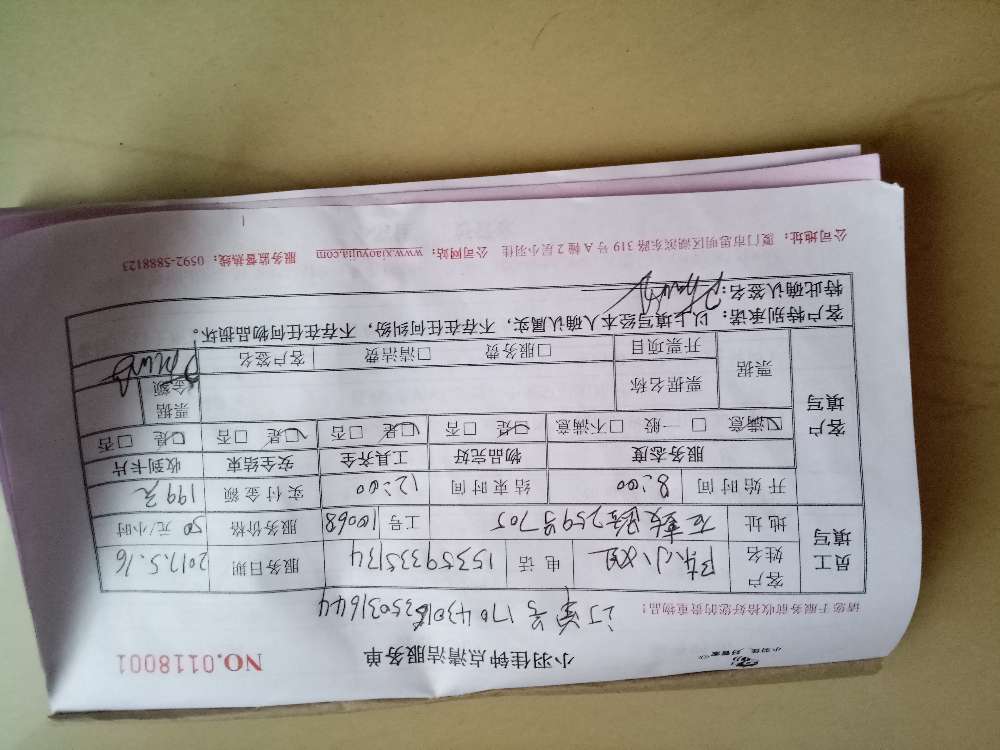 小羽佳 好管家
小羽佳钟点清洁服务单 NO.0118001
请您于服务前收拾好您的贵重物品!
订单号170430183503 1644
员工填写
客户姓名 陈小姐 电话 15359335134 服务日期 2017.5.16
地址 259号705 工号 10068 服务价格 50元/小时
开始时间 8:00 结束时间 12:00 实付金额 199元
客户填写
服务态度 物品完好 工具齐全 安全结束 收到卡片
☑满意 □一般 □不满意 ☑是 □否 ☑是 □否 ☑是 □否 ☑是 □否
票据 票据名称 票据金额
开票项目 □服务费 □清洁费 客户签名
客户特别承诺:以上填写经本人确认属实,不存在任何纠纷,不存在任何物品损坏。
特此确认签名:
公司地址:厦门市思明区湖滨东路 319 号 A 幢 2 层小羽佳 公司网站:www.xiaoyujia.com 服务监督热线:0592-5888123